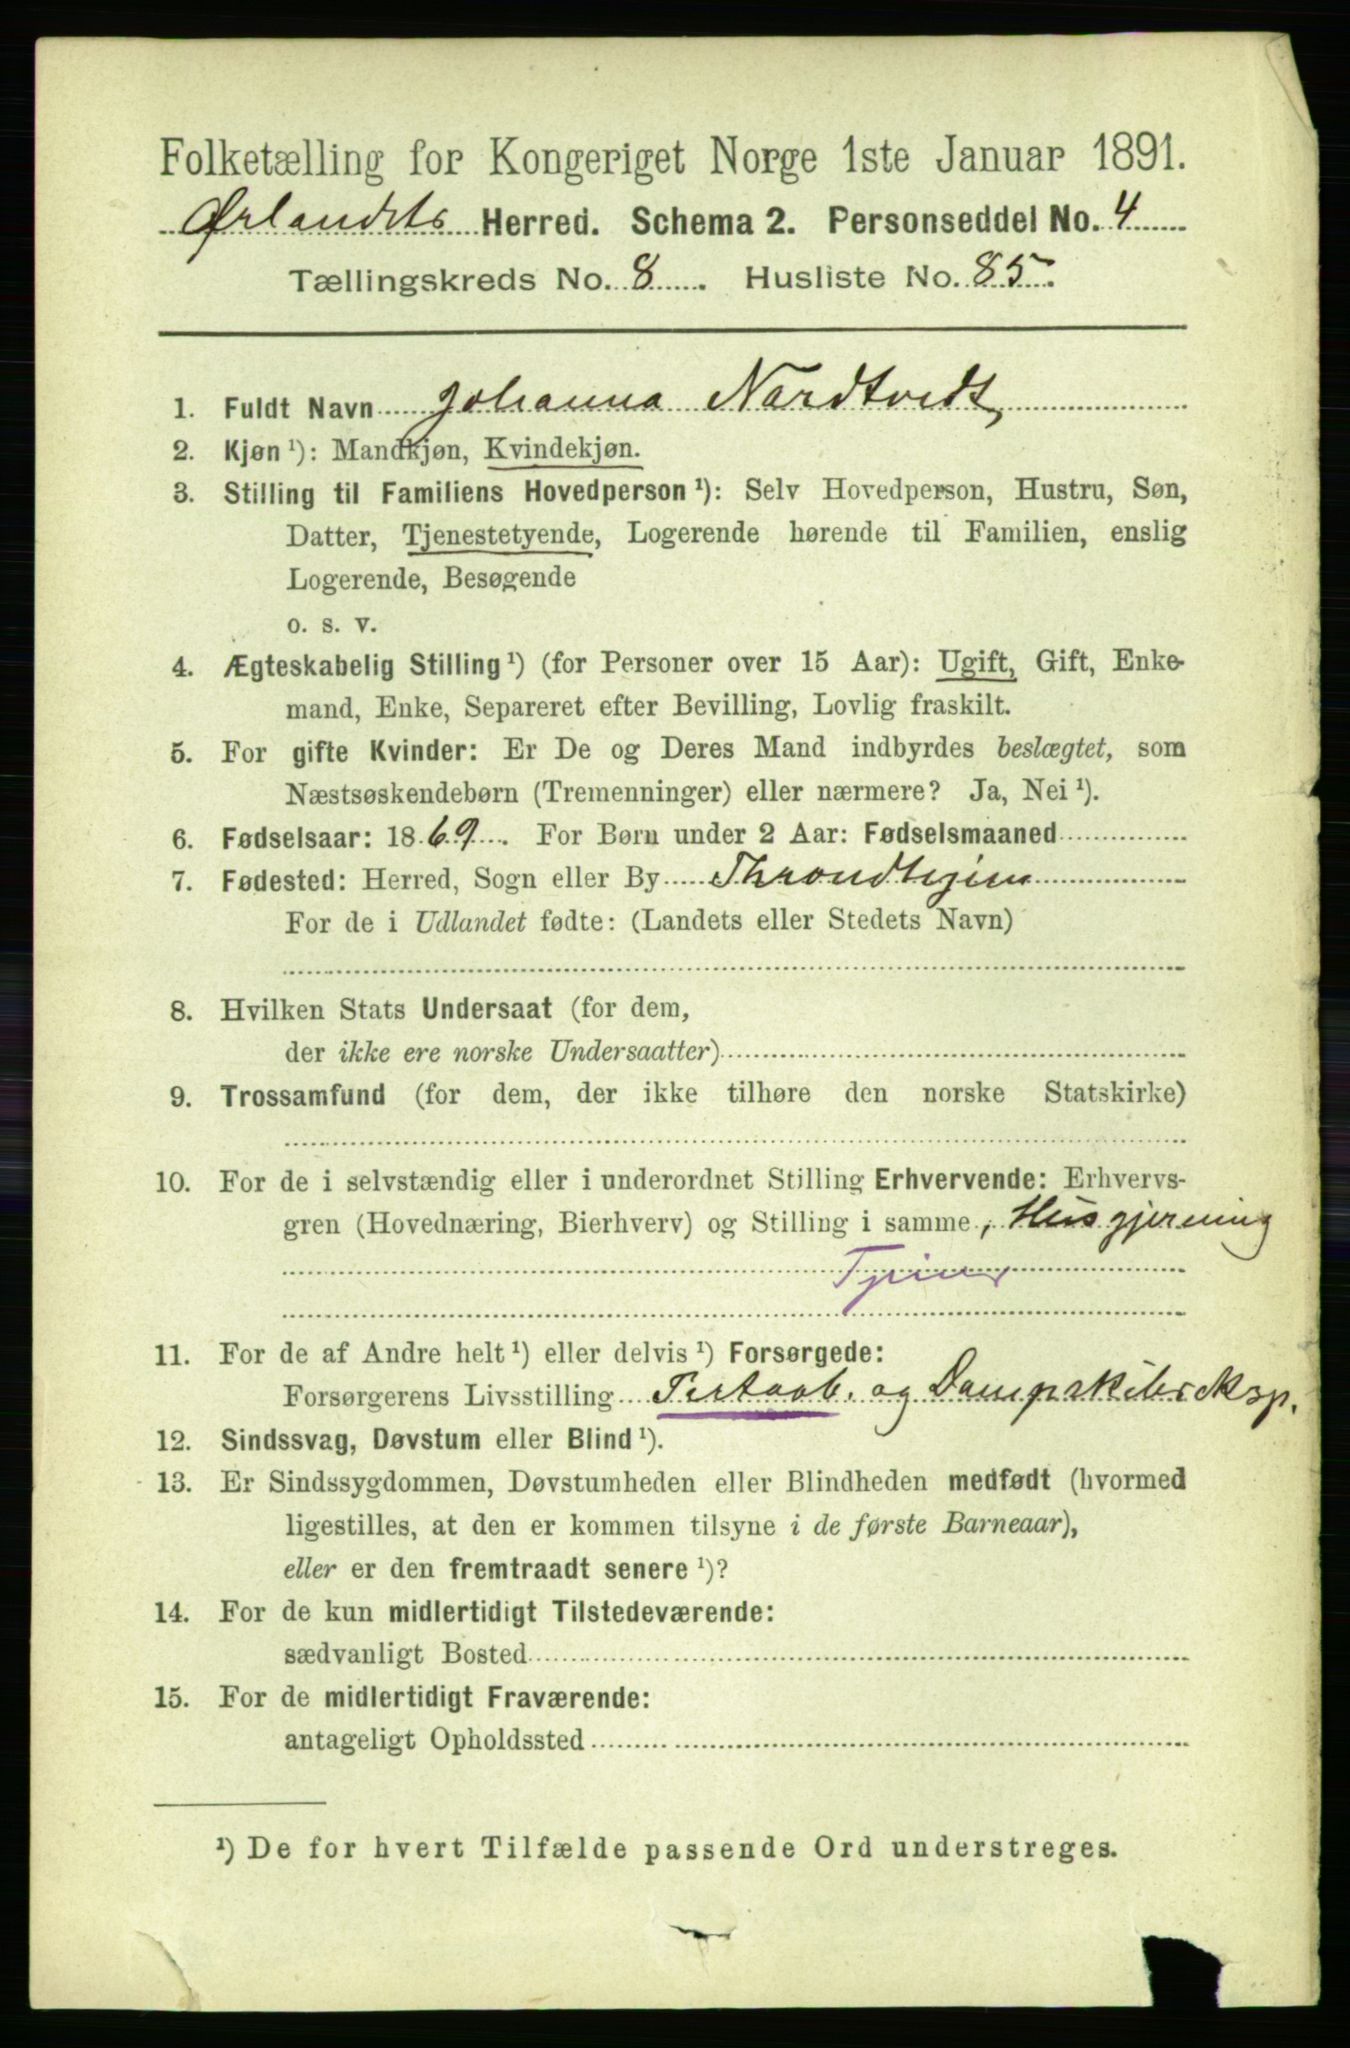 Folketælling for Kongeriget Norge 1ste Januar 1891.
Ørlandets Herred. Schema 2. Personseddel No. 4
Tællingskreds No. 8. Husliste No. 85.
1. Fuldt Navn Johanna Nardtvedt,
2. Kjøn ¹): Mandkjøn, Kvindekjøn.
3. Stilling til Familiens Hovedperson ¹): Selv Hovedperson, Hustru, Søn,
Datter, Tjenestetyende, Logerende hørende til Familien, enslig
Logerende, Besøgende
o. s. v.
4. Ægteskabelig Stilling ¹) (for Personer over 15 Aar): Ugift, Gift, Enke-
mand, Enke, Separeret efter Bevilling, Lovlig fraskilt.
5. For gifte Kvinder: Er De og Deres Mand indbyrdes beslægtet, som
Næstsøskendebørn (Tremenninger) eller nærmere? Ja, Nei ¹).
6. Fødselsaar: 1869. For Børn under 2 Aar: Fødselsmaaned
7. Fødested: Herred, Sogn eller By Throndhjem
For de i Udlandet fødte: (Landets eller Stedets Navn)
8. Hvilken Stats Undersaat (for dem,
der ikke ere norske Undersaatter)
9. Trossamfund (for dem, der ikke tilhøre den norske Statskirke)
10. For de i selvstændig eller i underordnet Stilling Erhvervende: Erhvervs-
gren (Hovednæring, Bierhverv) og Stilling i samme, Husgjerning
11. For de af Andre helt ¹) eller delvis ¹) Forsørgede:
Forsørgerens Livsstilling Postaab. og Dampskibseksp.
12. Sindssvag, Døvstum eller Blind ¹).
13. Er Sindssygdommen, Døvstumheden eller Blindheden medfødt (hvormed
ligestilles, at den er kommen tilsyne i de første Barneaar),
eller er den fremtraadt senere ¹)?
14. For de kun midlertidigt Tilstedeværende:
sædvanligt Bosted
15. For de midlertidigt Fraværende:
antageligt Opholdssted
¹) De for hvert Tilfælde passende Ord understreges.